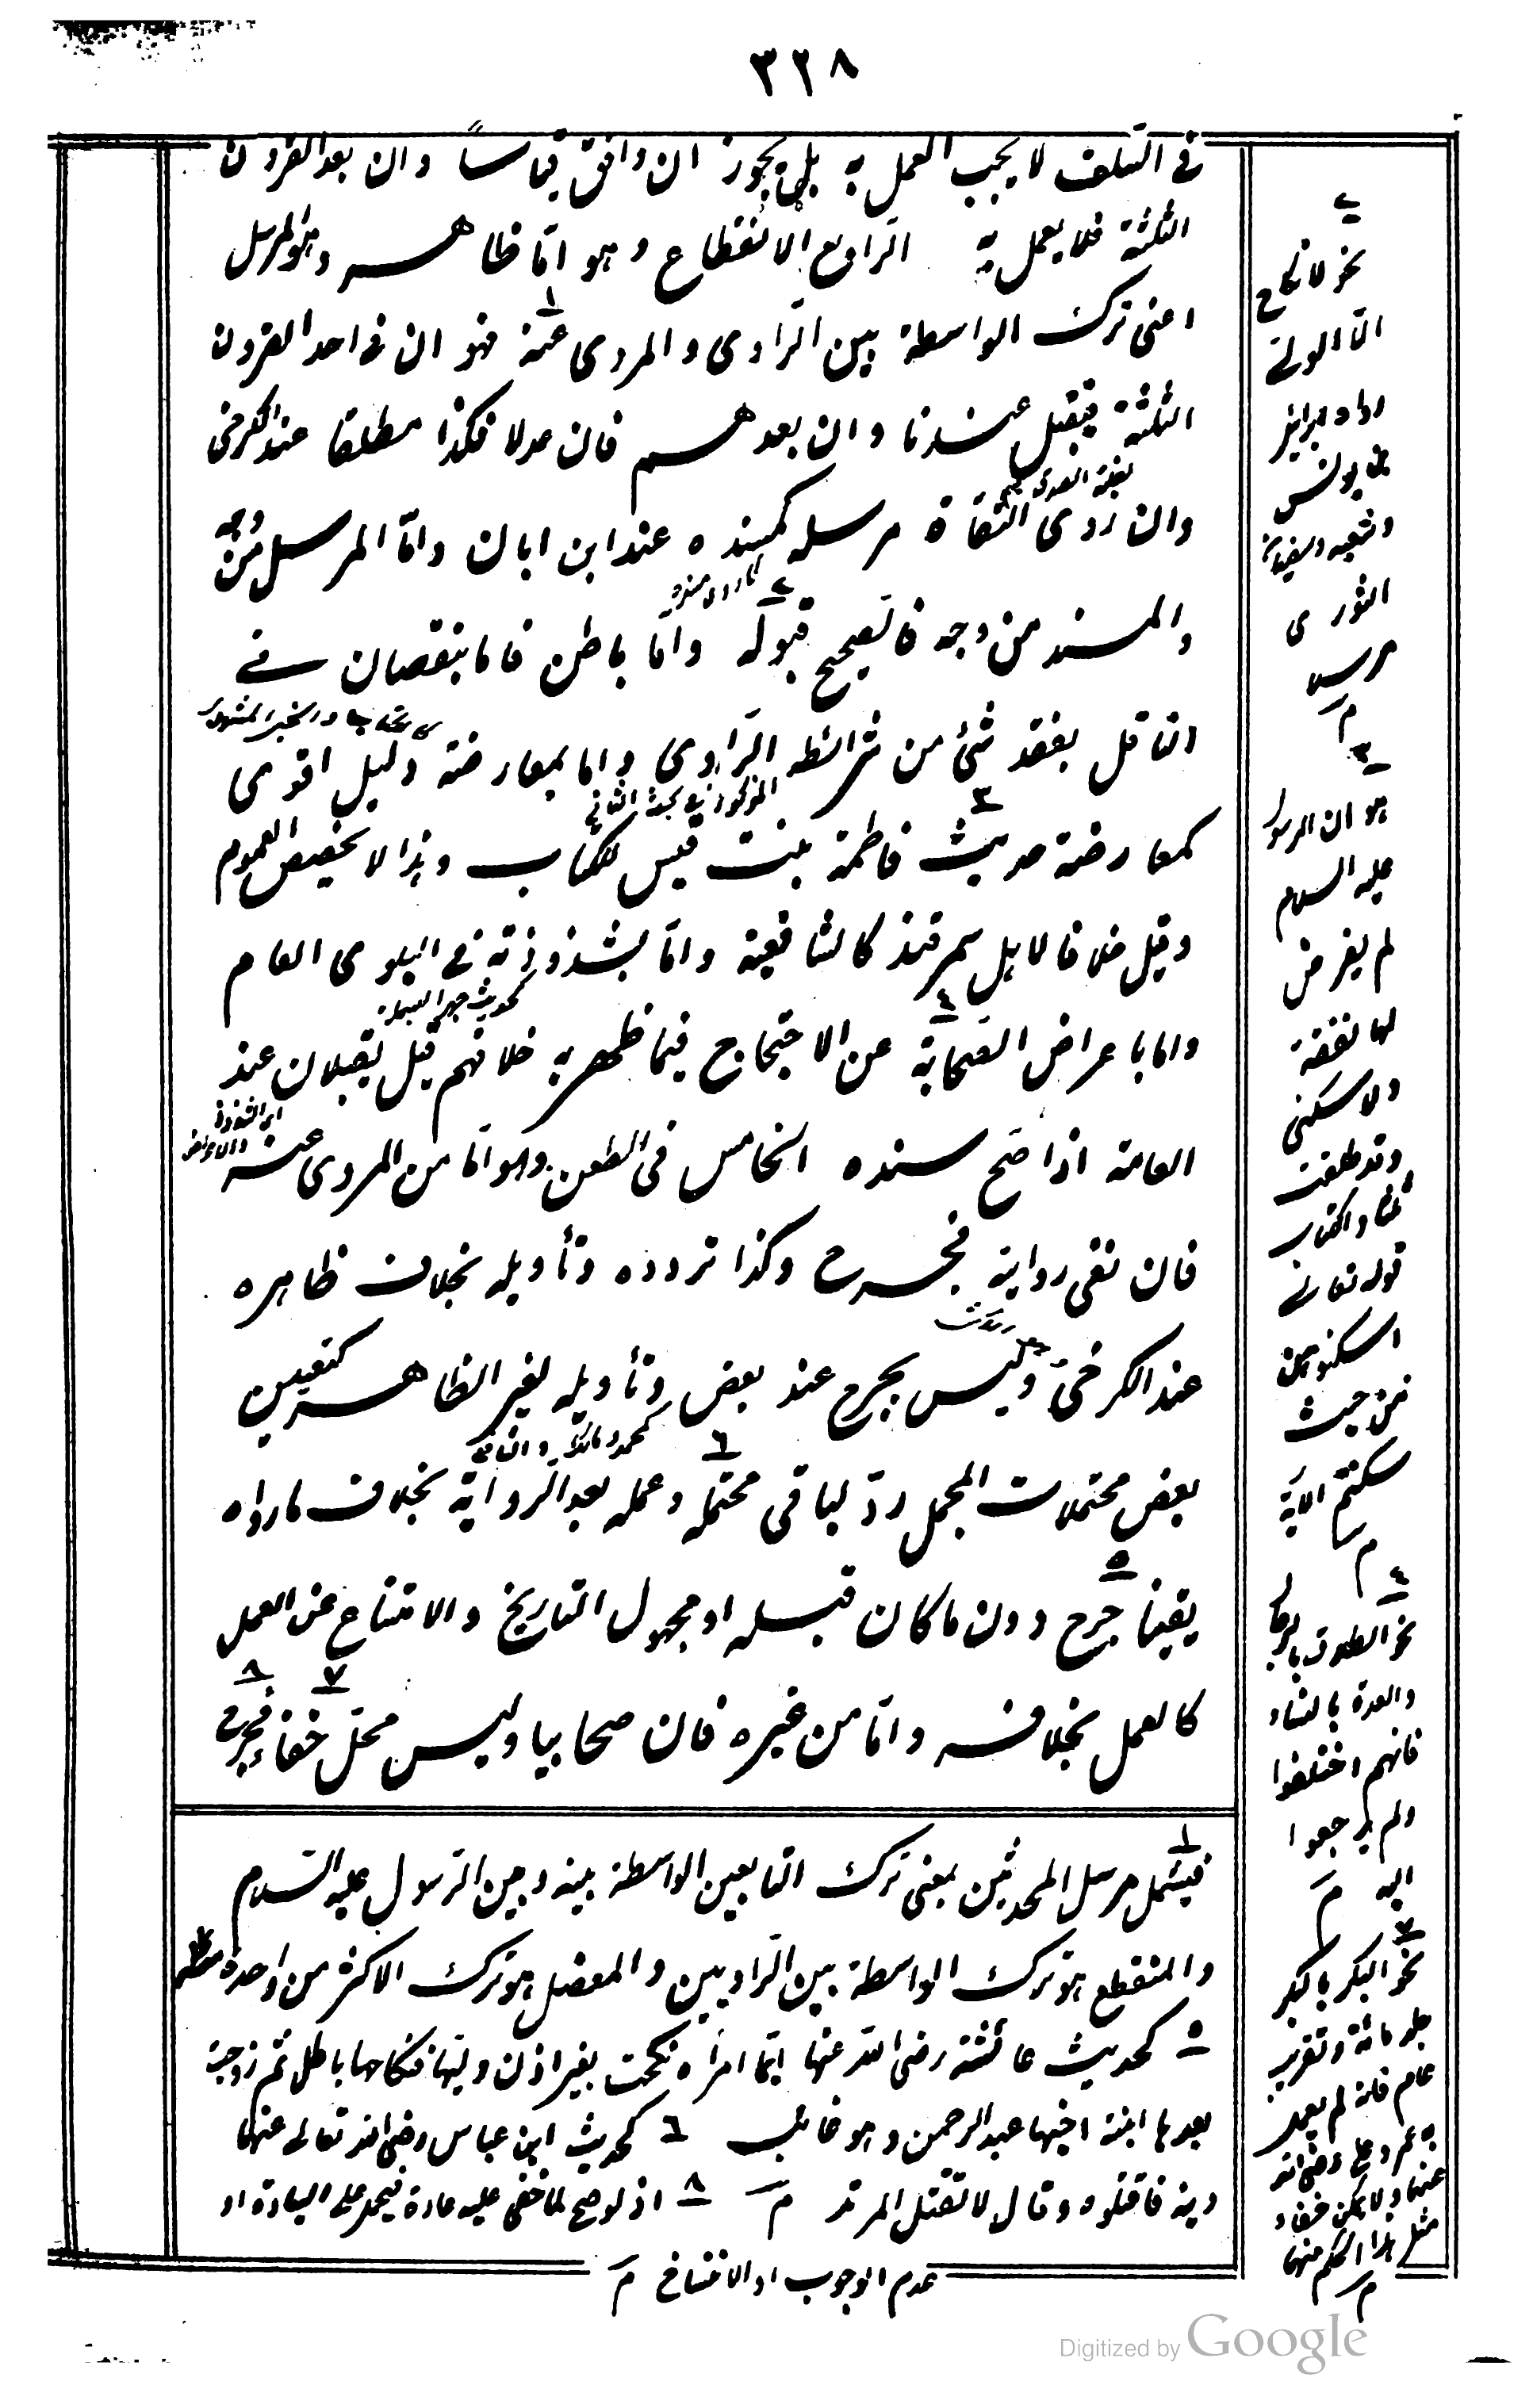 ٣٢٨
في السلف لا يجب العمل به بل يجوز ان وافق قياساً وان بعد القرون
الثلثة فلا يعمل به الرابع الانقطاع وهو امّا ظاهر وهو المرسل
اعنى ترك الواسطة بين الراوى والمروى عنه فهو ان في احد القرون
الثلثة فيقبل عندنا وان بعدهم فان عدلا فكذا مطلقا عند الكرخى
وان روى الثقاة مرسله كمسنده عند ابن ابان وامّا المرسل من وجه
والمسند من وجه فالصحيح قبوله وامّا باطن فاما بنقصان في
الناقل بفقد شئ من شرائط الراوى واما بمعارضة دليل اقوى
من الكتاب والخبر المشهور
كمعارضة حديث فاطمة بنت قيس للكتاب وهذا لا تخصيص العموم
وقيل خلافا لاهل سمرقند كالشافعية وامّا بشذوذته في البلوى العام
كحديث جهر البسملة
واما باعراض الصحابة عن الاحتجاج فيما ظهر به خلافهم قيل يقبلان عند
العامة اذا صح سنده الخامس في الطعن وهو امّا من المروى عنه
فان نفى رواية فجرح وكذا تردده وتأويله بخلاف ظاهره
عند الكرخى وليس بجرح عند بعض وتأويله لغير الظاهر كتعيين
بعض محتملات المجمل ردّ لباقى محتمله وعمله بعد الرواية بخلاف ما رواه
يقينا جرح دون ما كان قبله او مجهول التاريخ والامتناع عن العمل
كالعمل بخلافه وامّا من غيره فان صحابيا وليس محلّ خفاء فجرح
١ فيشمل مرسل المحدثين بمعنى ترك التابعين الواسطة بينه وبين الرسول عليه السلام
والمنقطع هو ترك الواسطة بين الراويين والمعضل هو ترك الاكثر من واحدة
٥ كحديث عائشة رضى الله عنها ايّما امرأة نكحت بغير اذن وليها فنكاحها باطل ثم زوجت
بعدها ابنة اخيها عبد الرحمن وهو غائب ٦ كحديث ابن عباس رضى الله تعالى عنهما
دينه فاقتلوه وقال لا تقتل المرتد م ٨ اذ لو صح لما خفى عليه عادة فيحمل على السيادة او
عدم الوجوب او الانتساخ م
٢
نحو لا نكاح
الّا الولى
رواه
يونس
وشعبه وسفيان
الثورى
مرسلا
م
٣
هو ان الرسول
عليه السلام
لم يفرض
لها نفقة
ولا سكنى
وقد طلقت
ثلثا والكتاب
قوله تعالى
اسكنوهن
من حيث
سكنتم الآية
م
٤
نحو الطلاق بالرجال
والعدة بالنساء
فانهم اختلفوا
ولم يرجعوا
اليه م
٧
نحو البكر بالبكر
جلد مائة وتغريب
عام فانه لم يعمل
به عمر وعلى رضى الله
عنهما ولا يمكن خفاء
مثل هذا الحكم منهما
م
Digitized by Google